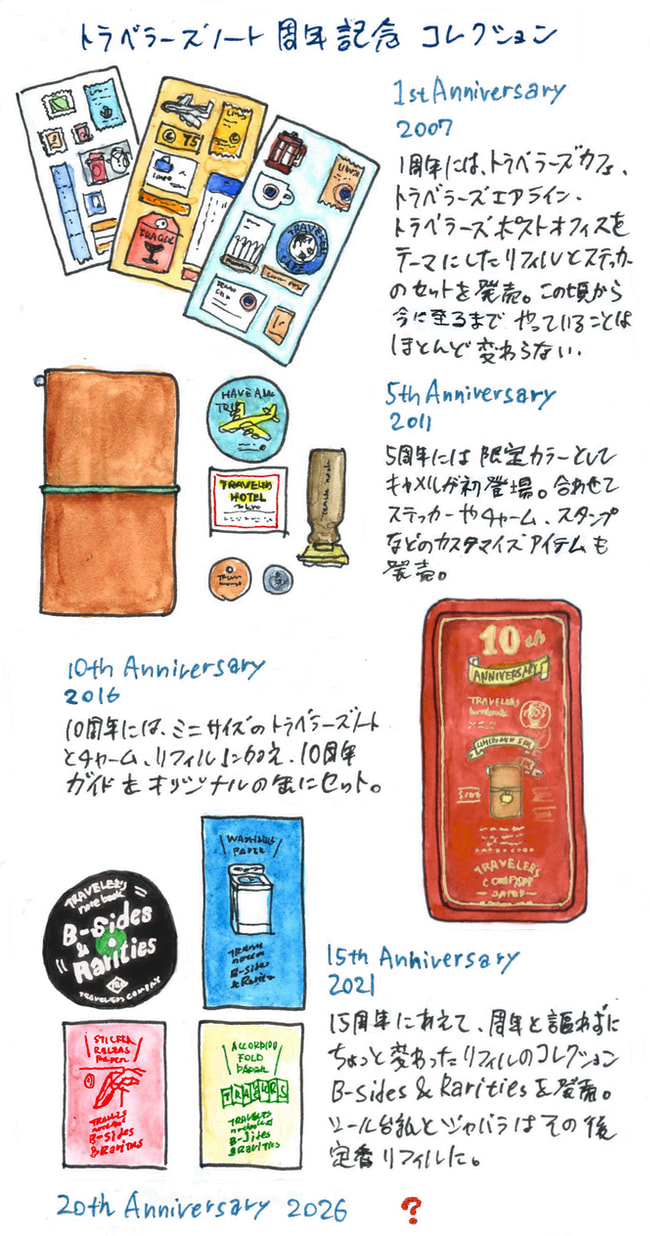 トラベラーズノート 周年記念 コレクション
1st Anniversary
2007
1周年には、トラベラーズカフェ、
トラベラーズエアライン、
トラベラーズポストオフィスを
テーマにしたリフィルとステッカー
のセットを発売。この頃から
今に至るまで やっていることは
ほとんど変わらない。
75
FRAGILE
TRAVELER'S
CAFE
5th Anniversary
2011
5周年には 限定カラーとして
キャメルが初登場。合わせて
ステッカーやチャーム、スタンプ
などのカスタマイズアイテムも
発売。
HAVE A
TRIP
TRAVELER'S
HOTEL
TOKYO
10th Anniversary
2016
10周年には、ミニサイズのトラベラーズノート
とチャーム、リフィルに加え、10周年
ガイドをオリジナルの缶にセット。
10th
ANNIVERSARY
TRAVELER'S
notebook
TRAVELER'S
COMPANY
JAPAN
TRAVELER'S
notebook
B-Sides
&
Rarities
TRAVELER'S COMPANY
WASHABLE
PAPER
B-Sides
& Rarities
STICKER
RELEASE
PAPER
TRAVELER'S
notebook
B-Sides
& Rarities
ACCORDION
FOLD
PAPER
TRAVELERS
TRAVELER'S
notebook
B-Sides
& Rarities
15th Anniversary
2021
15周年にあえて、周年と謳わずに
ちょっと変わったリフィルのコレクション
B-Sides & Rarities を発売。
シール台紙とジャバラはその後
定番リフィルに。
20th Anniversary 2026 ?